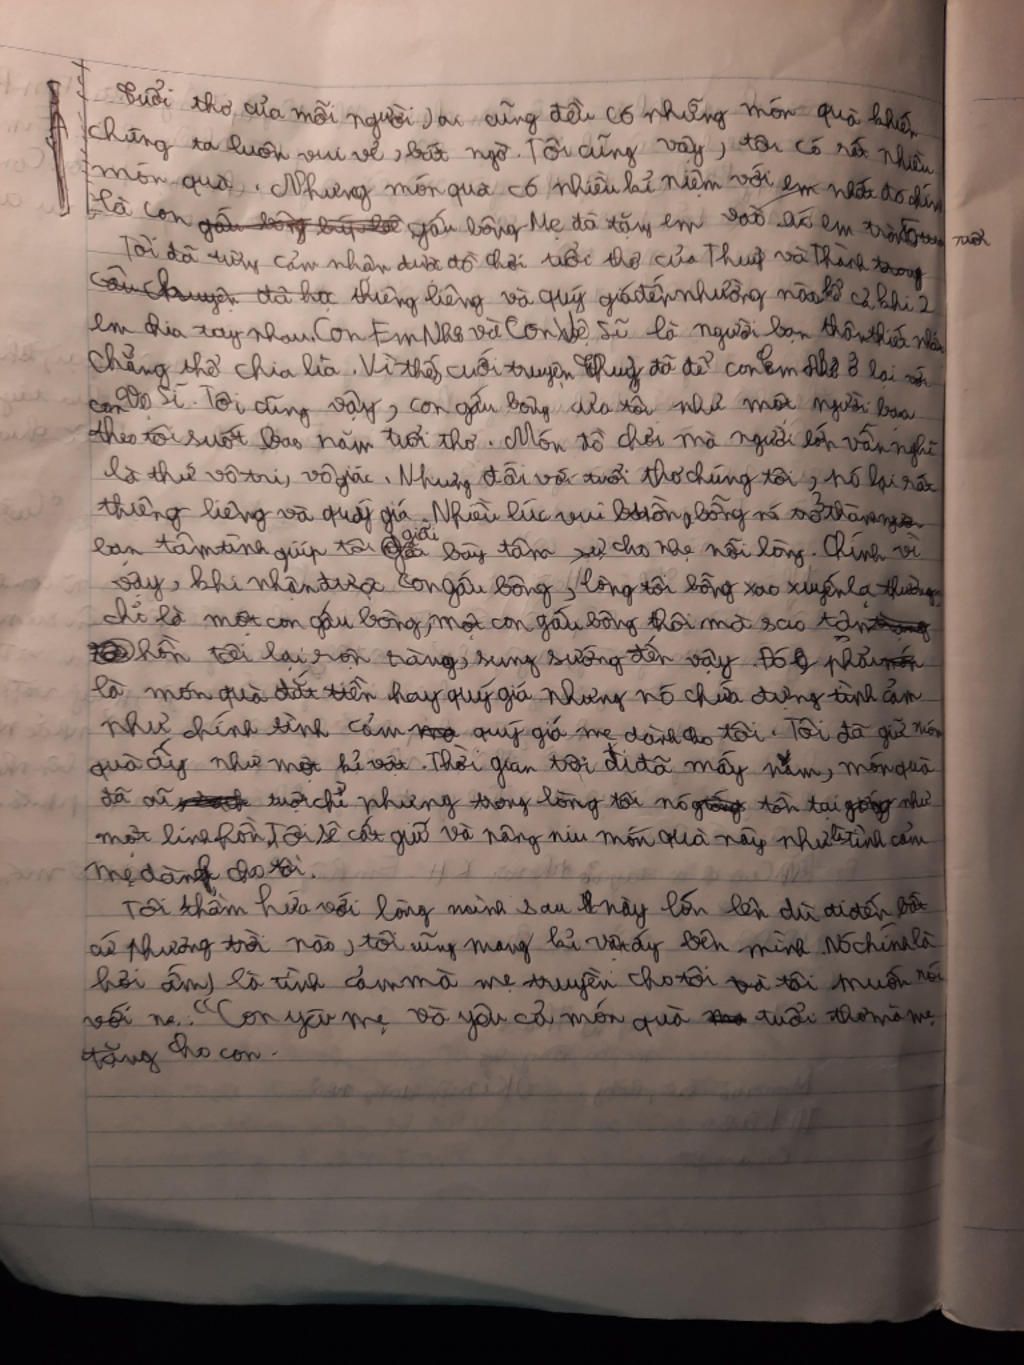 Tuổi thơ của mỗi người, ai cũng đều có những món quà khiến
chúng ta luôn vui vẻ, bất ngờ. Tôi cũng vậy, tôi có rất nhiều
món quà. Nhưng món quà có nhiều kỉ niệm với em nhất đó chính
là con gấu bông Mẹ đã tặng em em tròn tuổi
Tôi đã từng cảm nhận được đồ chơi tuổi thơ của Thuỷ và Thành trong
câu chuyện đã học thiêng liêng và quý giá đến nhường nào kể cả khi 2
em chia tay nhau. Con Em Nhỏ và Con Vệ Sĩ là người bạn thân thiết nhất
chẳng thể chia lìa. Vì thế, cuối truyện Thuỷ đã để con Em Nhỏ ở lại với
con Vệ Sĩ. Tôi cũng vậy, con gấu bông của tôi như một người bạn
theo tôi suốt bao năm tuổi thơ. Món đồ chơi mà người lớn vẫn nghĩ
là thứ vô tri, vô giác. Nhưng đối với tuổi thơ chúng tôi, nó lại rất
thiêng liêng và quý giá. Nhiều lúc vui buồn, bỗng nó trở thành người
bạn tâm tình giúp tôi giãi bày tâm sự cho nhẹ nỗi lòng. Chính vì
vậy, khi nhận được con gấu bông, lòng tôi bỗng xao xuyến lạ thường
chỉ là một con gấu bông, một con gấu bông thôi mà sao tâm
hồn tôi lại rộn ràng, sung sướng đến vậy. Đó phải
là món quà đắt tiền hay quý giá nhưng nó chứa đựng tình cảm
như chính tình cảm quý giá mẹ dành cho tôi. Tôi đã giữ món
quà ấy như một kỉ vật. Thời gian trôi đi đã mấy năm, món quà
đã cũ nhưng trong lòng tôi nó tồn tại như
một linh hồn. Tôi sẽ cất giữ và nâng niu món quà này như là tình cảm
mẹ dành cho tôi.
Tôi thầm hứa với lòng mình sau này lớn lên dù đi đến bất
cứ phương trời nào, tôi cũng mang kỉ vật ấy bên mình. Nó chính là
hơi ấm, là tình cảm mà mẹ truyền cho tôi và tôi muốn nói
với mẹ: "Con yêu mẹ và yêu cả món quà tuổi thơ mà mẹ
tặng cho con.